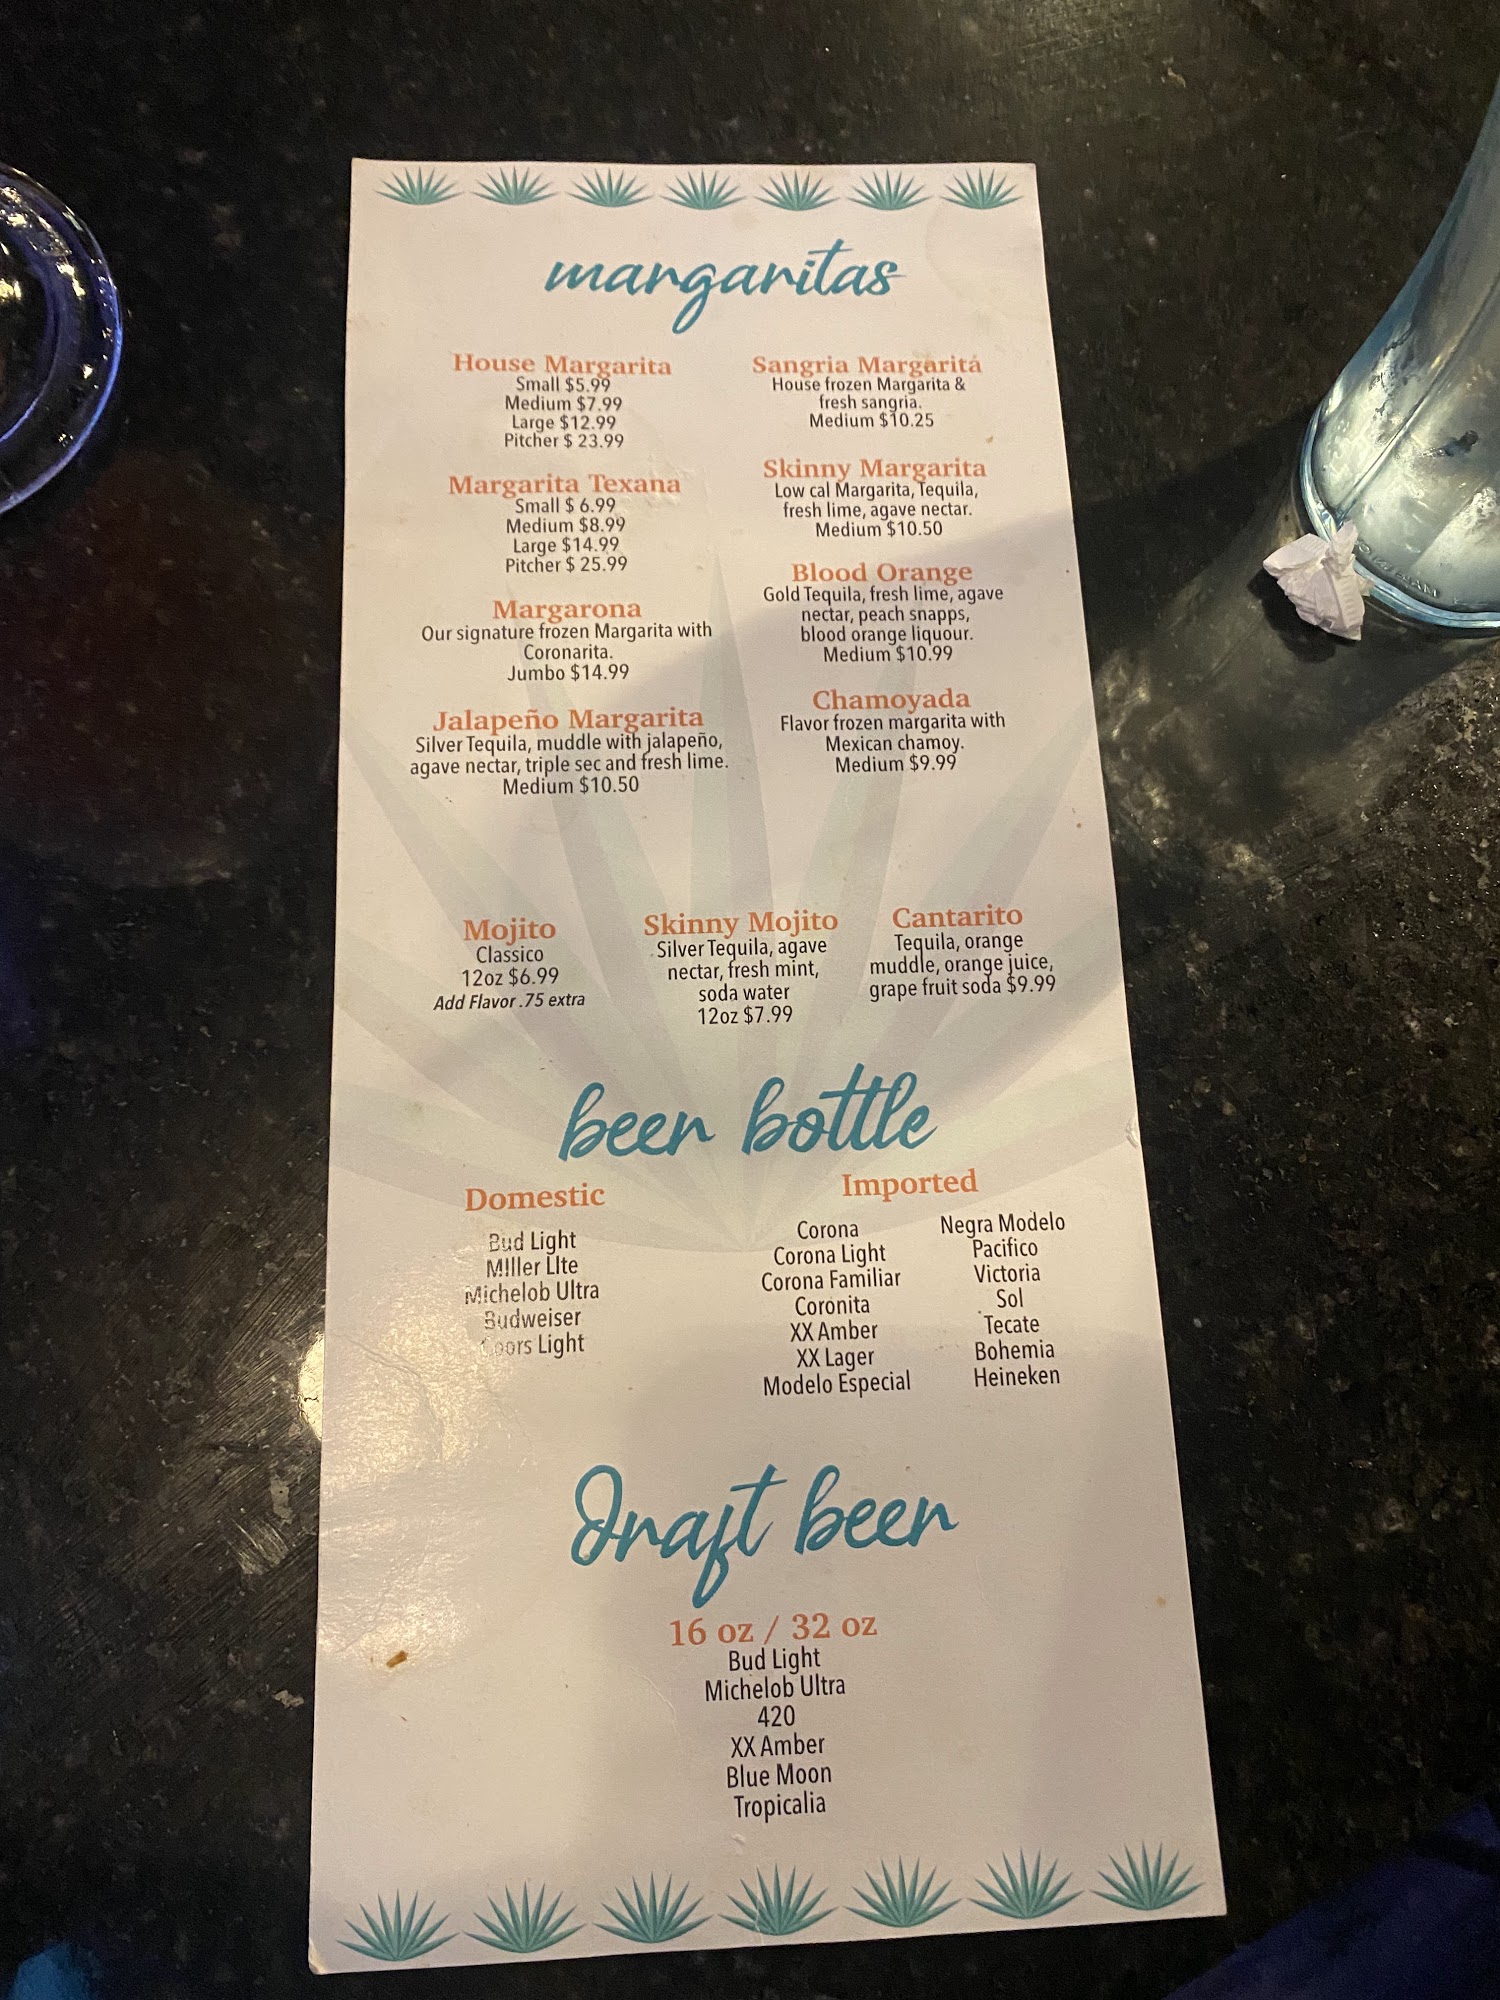 margaritas
House Margarita
Small $5.99
Medium $7.99
Large $12.99
Pitcher $ 23.99
Margarita Texana
Small $ 6.99
Medium $8.99
Large $14.99
Pitcher $ 25.99
Margarona
Our signature frozen Margarita with
Coronarita.
Jumbo $14.99
Jalapeño Margarita
Silver Tequila, muddle with jalapeño,
agave nectar, triple sec and fresh lime.
Medium $10.50
Sangria Margarita
House frozen Margarita &
fresh sangria.
Medium $10.25
Skinny Margarita
Low cal Margarita, Tequila,
fresh lime, agave nectar.
Medium $10.50
Blood Orange
Gold Tequila, fresh lime, agave
nectar, peach snapps,
blood orange liquour.
Medium $10.99
Chamoyada
Flavor frozen margarita with
Mexican chamoy.
Medium $9.99
Mojito
Classico
12oz $6.99
Add Flavor .75 extra
Skinny Mojito
Silver Tequila, agave
nectar, fresh mint,
soda water
12oz $7.99
Cantarito
Tequila, orange
muddle, orange juice,
grape fruit soda $9.99
beer bottle
Domestic
Bud Light
MIller LIte
Michelob Ultra
Budweiser
Coors Light
Imported
Corona
Corona Light
Corona Familiar
Coronita
XX Amber
XX Lager
Modelo Especial
Negra Modelo
Pacifico
Victoria
Sol
Tecate
Bohemia
Heineken
Draft beer
16 oz / 32 oz
Bud Light
Michelob Ultra
420
XX Amber
Blue Moon
Tropicalia